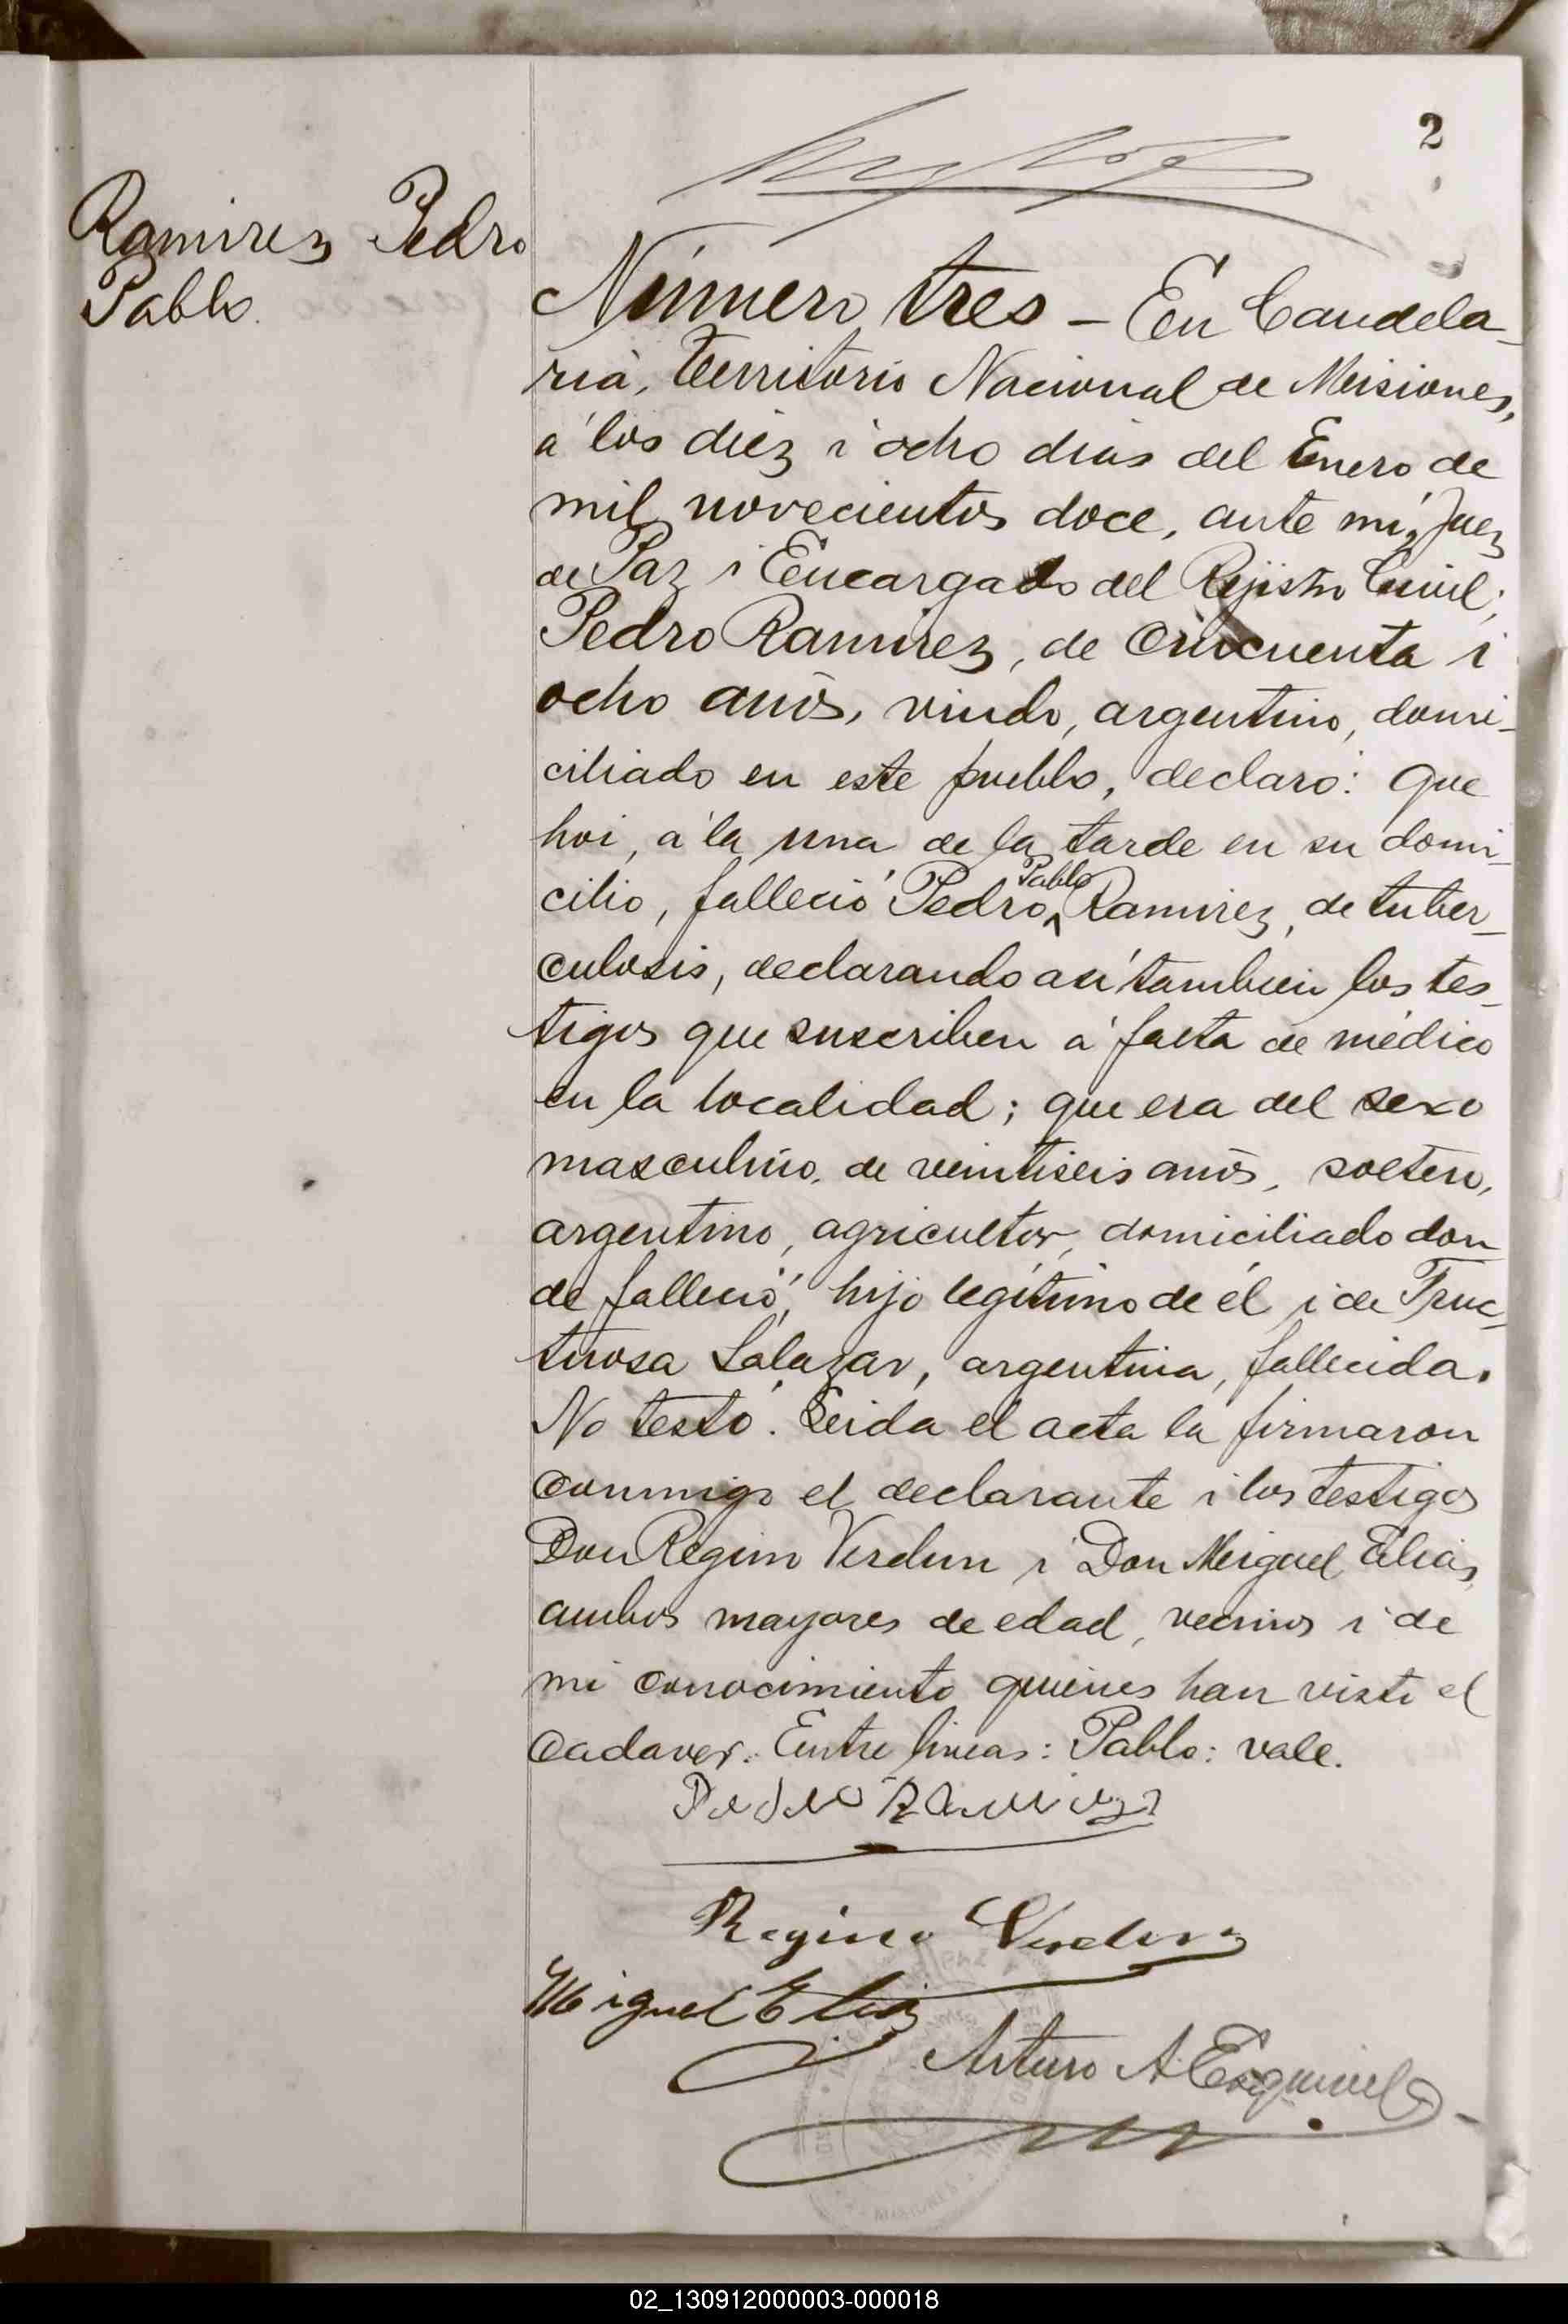 2
Ramirez Pedro
Pablo.
Número tres - En Candela-
ria, territorio Nacional de Misiones,
á los diez i ocho dias del Enero de
mil novecientos doce, ante mi, Juez
de Paz i Encargado del Rejistro Civil;
Pedro Ramirez, de cincuenta i
ocho años, viudo, argentino, domi-
ciliado en este pueblo, declaró: Que
hoi, á la una de la tarde en su domi-
cilio, falleció Pedro Pablo Ramirez, de tuber-
culosis, declarando así tambien los tes-
tigos que suscriben á falta de médico
en la localidad; que era del sexo
masculino, de veintiseis años, soltero,
argentino, agricultor, domiciliado don-
de falleció, hijo legítimo de él i de Fruc-
tuosa Salazar, argentina, fallecida.
No testó. Leida el acta la firmaron
conmigo el declarante i los testigos
Don Regino Verdun i Don Miguel Elias,
ambos mayores de edad, vecinos i de
mi conocimiento quienes han visto el
cadaver. Entre lineas: Pablo: vale.
Pedro Ramirez
Regino Verdun
Miguel Elias
Arturo A. Esquivel
MISIONES
02_130912000003-000018